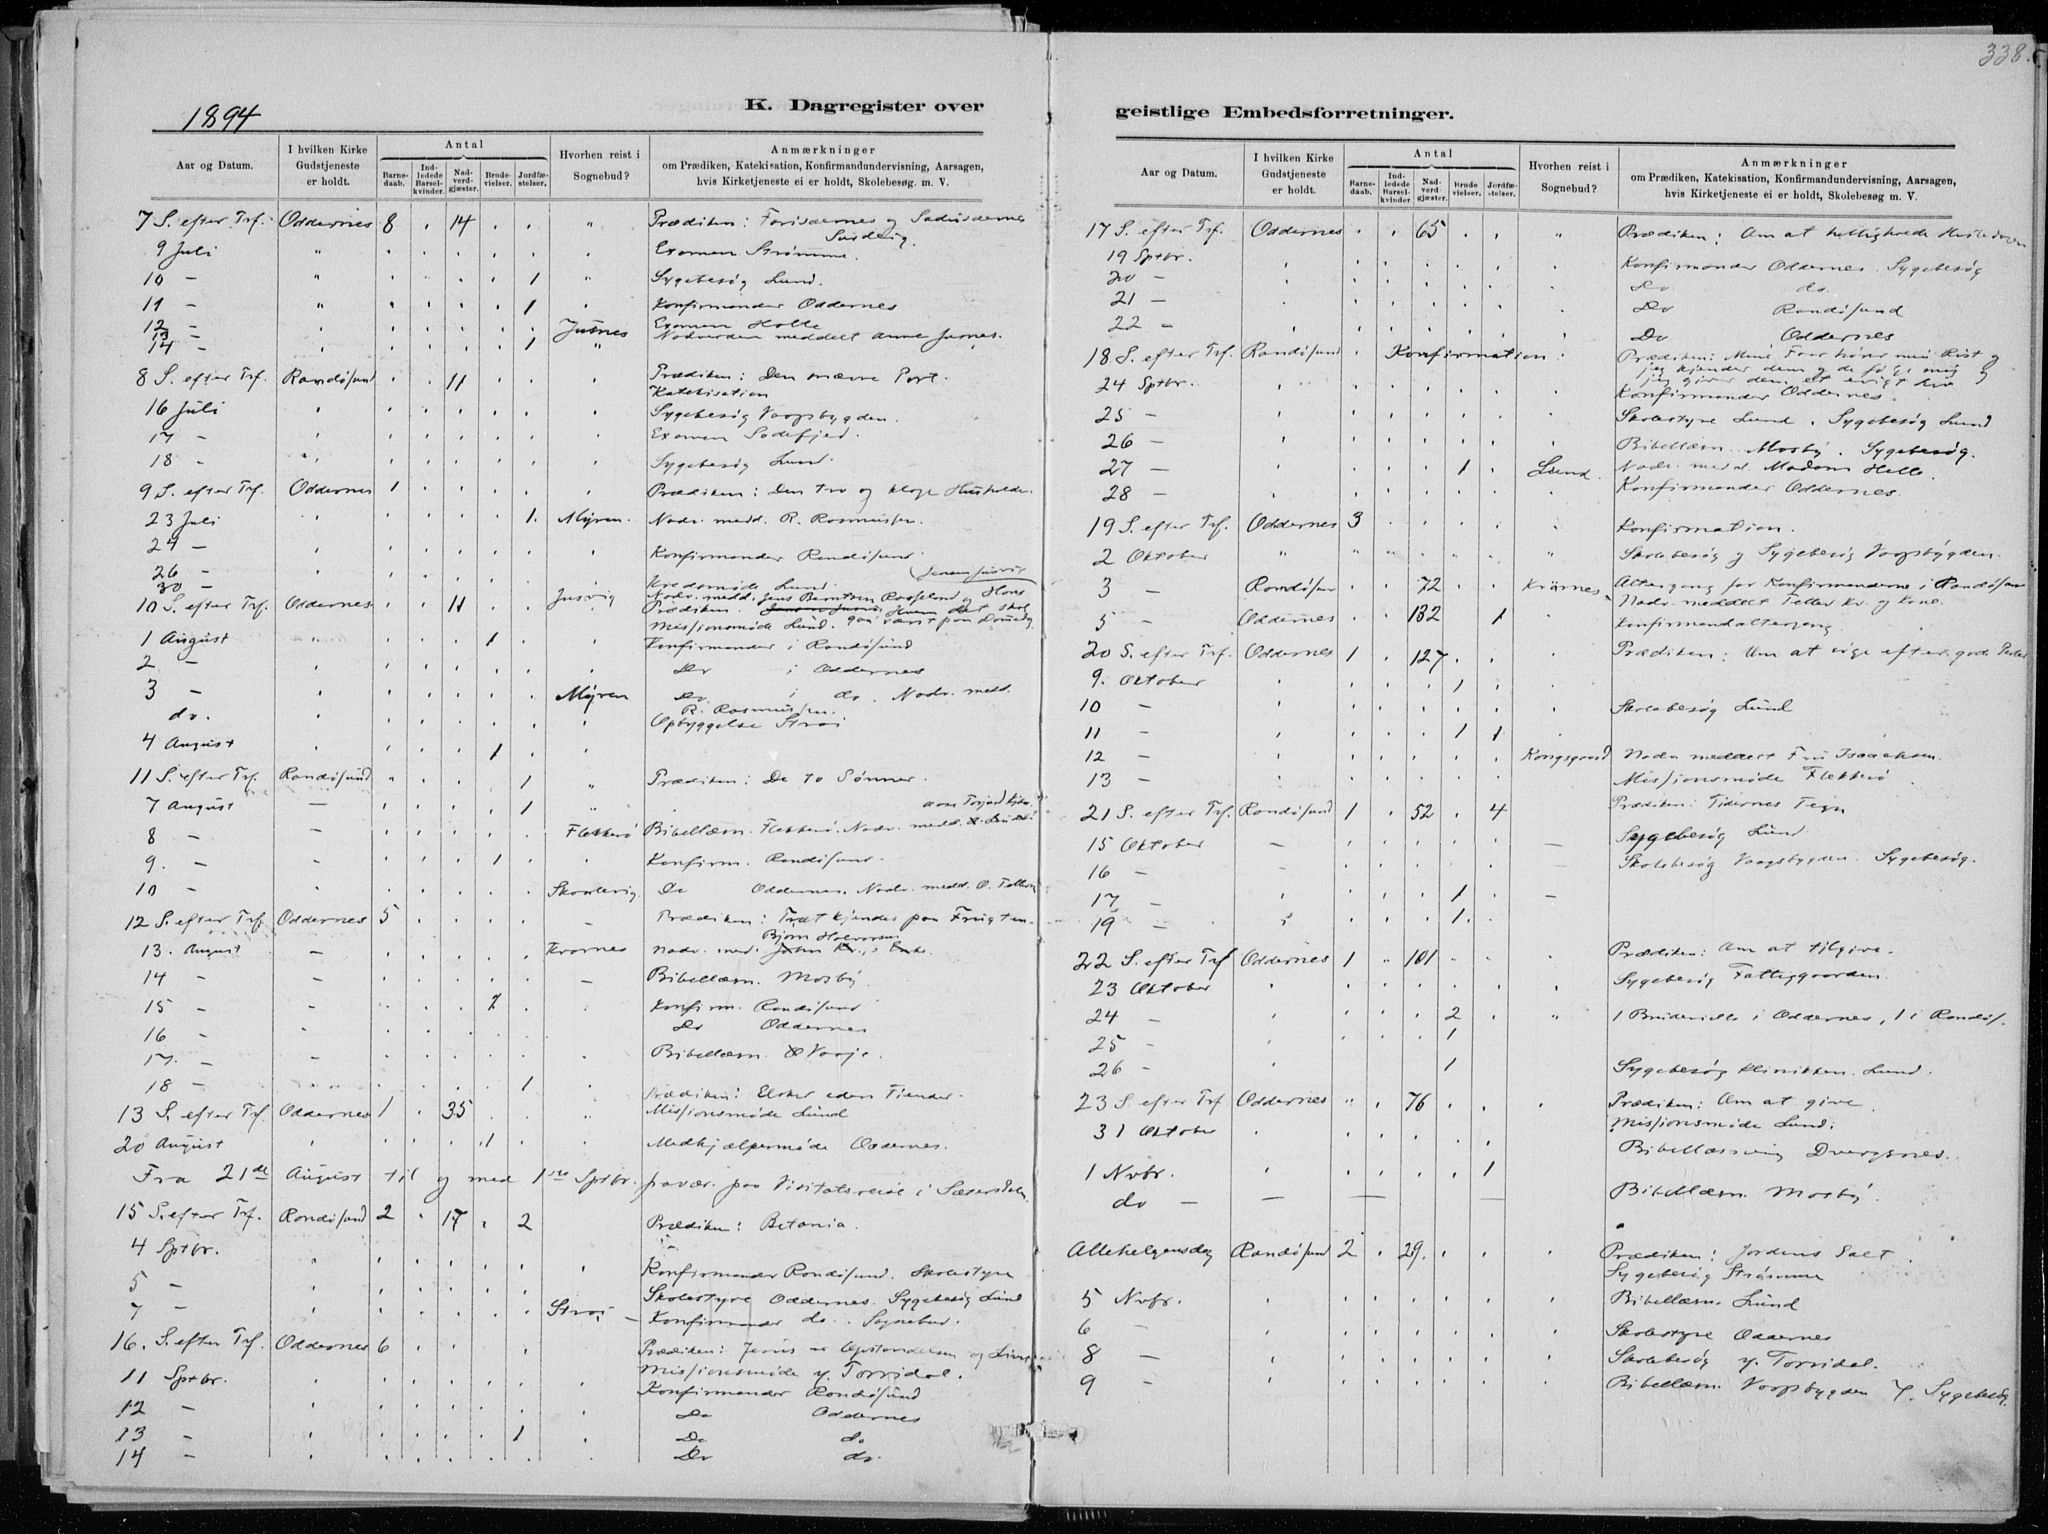 338.
1894
K. Dagregister over
geistlige Embedsforretninger.
Aar og Datum.
I hvilken Kirke Gudstjeneste er holdt.
Antal
Barnedaab.
Indledede Barselkvinder.
Nadverdgjæster.
Brudevielser.
Jordfæstelser.
Hvorhen reist i Sognebud?
Anmærkninger
om Prædiken, Katekisation, Konfirmandundervisning, Aarsagen,
hvis Kirketjeneste ei er holdt, Skolebesøg m. V.
7 S. efter Trf. Oddernes 8 . 14 . . " Prædiken: Farisæernes og Saduseernes
Surdeig.
9 Juli " Examen Strømme.
10 - " 1 " Sygebesøg Lund.
11 - " 1 Konfirmander Oddernes
12 - Jusnes Examen Holte
13 - Nadverden meddelt Anne Jusnes.
14 - 1 "
8 S. efter Trf. Randøsund . . 11 . . Prædiken: Den snævre Port.
Katekisation
16 Juli Sygebesøg Vaagsbygden.
17 - Examen Sodefjed.
18 - Sygebesøg Lund.
9 S. efter Trf. Oddernes 1 Prædiken: Den tro og kloge Husholder.
23 Juli 1. Myren. Nadv. medd. R. Rasmussen.
24 - Konfirmander Randøsund.
26 - Kredsmøde Lund.
30 - Jusvig Nadv. medd. Jens Berntsen Rosseland og Hans
10 S. efter Trf. Oddernes . . 11 Prædiken.
Missionsmøde Lund.
1 August 1 Konfirmander i Randøsund
2 - Do i Oddernes
3 - Myren Do. i do. Nadv. medd.
R. Rasmussen.
do. Opbyggelse Strai
4 August 1
11 S. efter Trf. Randøsund " 1 " Prædiken: De to Sønner.
7 August - 1 "
8 - Flekkerø Bibellæsn. Flekkerø. Nadv. medd.
9. - 1 Konfirm. Randøsund.
10 - Skaalevig Do Oddernes. Nadv. medd. O.
12 S. efter Trf. Oddernes 5 - Prædiken: Træt kjendes paa Frugten.
Bjørn Halvorsen
13. August - Nadv. med.
14 - - Bibellæsn. Mosby.
15 - - 2 Konfirm. Randøsund
16 - Do Oddernes
17. - - Bibellæsn. Vaaje.
18 - 1
13 S. efter Trf. Oddernes 1 . 35 " Prædiken: Elsker eders Fiender.
Missionsmøde Lund
20 August 1 Medhjælpermøde Oddernes.
Fra 21de August til og med 1ste Sptbr. fravær. paa Visitatsreise i Sætersdalen
15 S. efter Trf. Randøsund 2 . 17 . 2 Prædiken: Betania.
4 Sptbr.
5 - Konfirmander Randøsund. Skolestyre
Skolestyre Oddernes. Sygebesøg Lund
7 - Strai - Konfirmander do. Sognebud.
16. S. efter Trf. Oddernes 6 Prædiken: Jesus er Opstandelsen og Livet
Missionsmøde v. Torridal.
11 Sptbr. Konfirmander Randøsund
12 - Do Oddernes
13 - 1 Do do
14 - Do do.
Aar og Datum.
I hvilken Kirke Gudstjeneste er holdt.
Antal
Barnedaab.
Indledede Barselkvinder.
Nadverdgjæster.
Brudevielser.
Jordfæstelser.
Hvorhen reist i Sognebud?
Anmærkninger
om Prædiken, Katekisation, Konfirmandundervisning, Aarsagen,
hvis Kirketjeneste ei er holdt, Skolebesøg m. V.
17 S. efter Trf. Oddernes . . 65 . . " Prædiken: Om at helligholde Hviledagen
19 Sptbr. Konfirmander Oddernes. Sygebesøg
20 - Do do.
21 - Do Randøsund
22 - Do Oddernes
18 S. efter Trf. Randøsund . Konfirmation: Prædiken: Mine Faar hører min Røst og
jeg kjender dem og de følge mig og
jeg giver dem et evigt Liv
24 Sptbr. Konfirmander Oddernes.
25 - Skolestyre Lund. Sygebesøg Lund
26 - Bibellæsn. Mosby. Sygebesøg.
27 - 1 Lund. Nadv. medd. Madam Helle
28 - Konfirmander Oddernes.
19 S. efter Trf. Oddernes 3 Konfirmation.
2 Oktober " " " Skolebesøg og Sygebesøg Vaagsbygden.
3 - Randøsun . . 72 . . Altergang for Konfirmanderne i Randøsun
Nadv. meddelt Tellef Kr. og Kone.
5 - Oddernes . . 132 . 1 Konfirmandaltergang
20 S. efter Trf. Oddernes 1 . 127 . Prædiken: Om at søge efter gode Perler
9. Oktober 1
10 - Skolebesøg Lund
11 - 1 1
12 - Kongsgaard Nadv. meddelt Fru Isaachsen.
13 - Missionsmøde Flekkerø
21 S. efter Trf. Randøsund 1 . 52 . 4 Prædiken: Tidernes Tegn
15 Oktober - - Sygebesøg Lund
16 - Skolebesøg Vaagsbygden. Sygebesøg.
17 - 1 -
19 - 1.
22 S. efter Trf Oddernes 1 " 101 Prædiken: Om at tilgive.
23 Oktober Sygebesøg Fattiggaarden.
24 - 2 " 1 Brudevielse i Oddernes, 1 i Randøs.
25 - 1
26 - 1 Sygebesøg Klinikken. Lund.
23 S. efter Trf Oddernes " . 76 Prædiken: Om at give.
Missionsmøde Lund.
31 Oktober Bibellæsning Dvergsnes.
1 Nvbr. 1
do - Bibellæsn. Mosby.
Allehelgensdag Randøsund 2 . 29. Prædiken: Jordens Salt.
Sygebesøg Strømme
5 Nvbr. Bibellæsn. Lund
6 - Skolestyre Oddernes
8 - Skolebesøg v. Torridal.
9 - Bibellæsn. Vaagsbygden Sygebesøg.